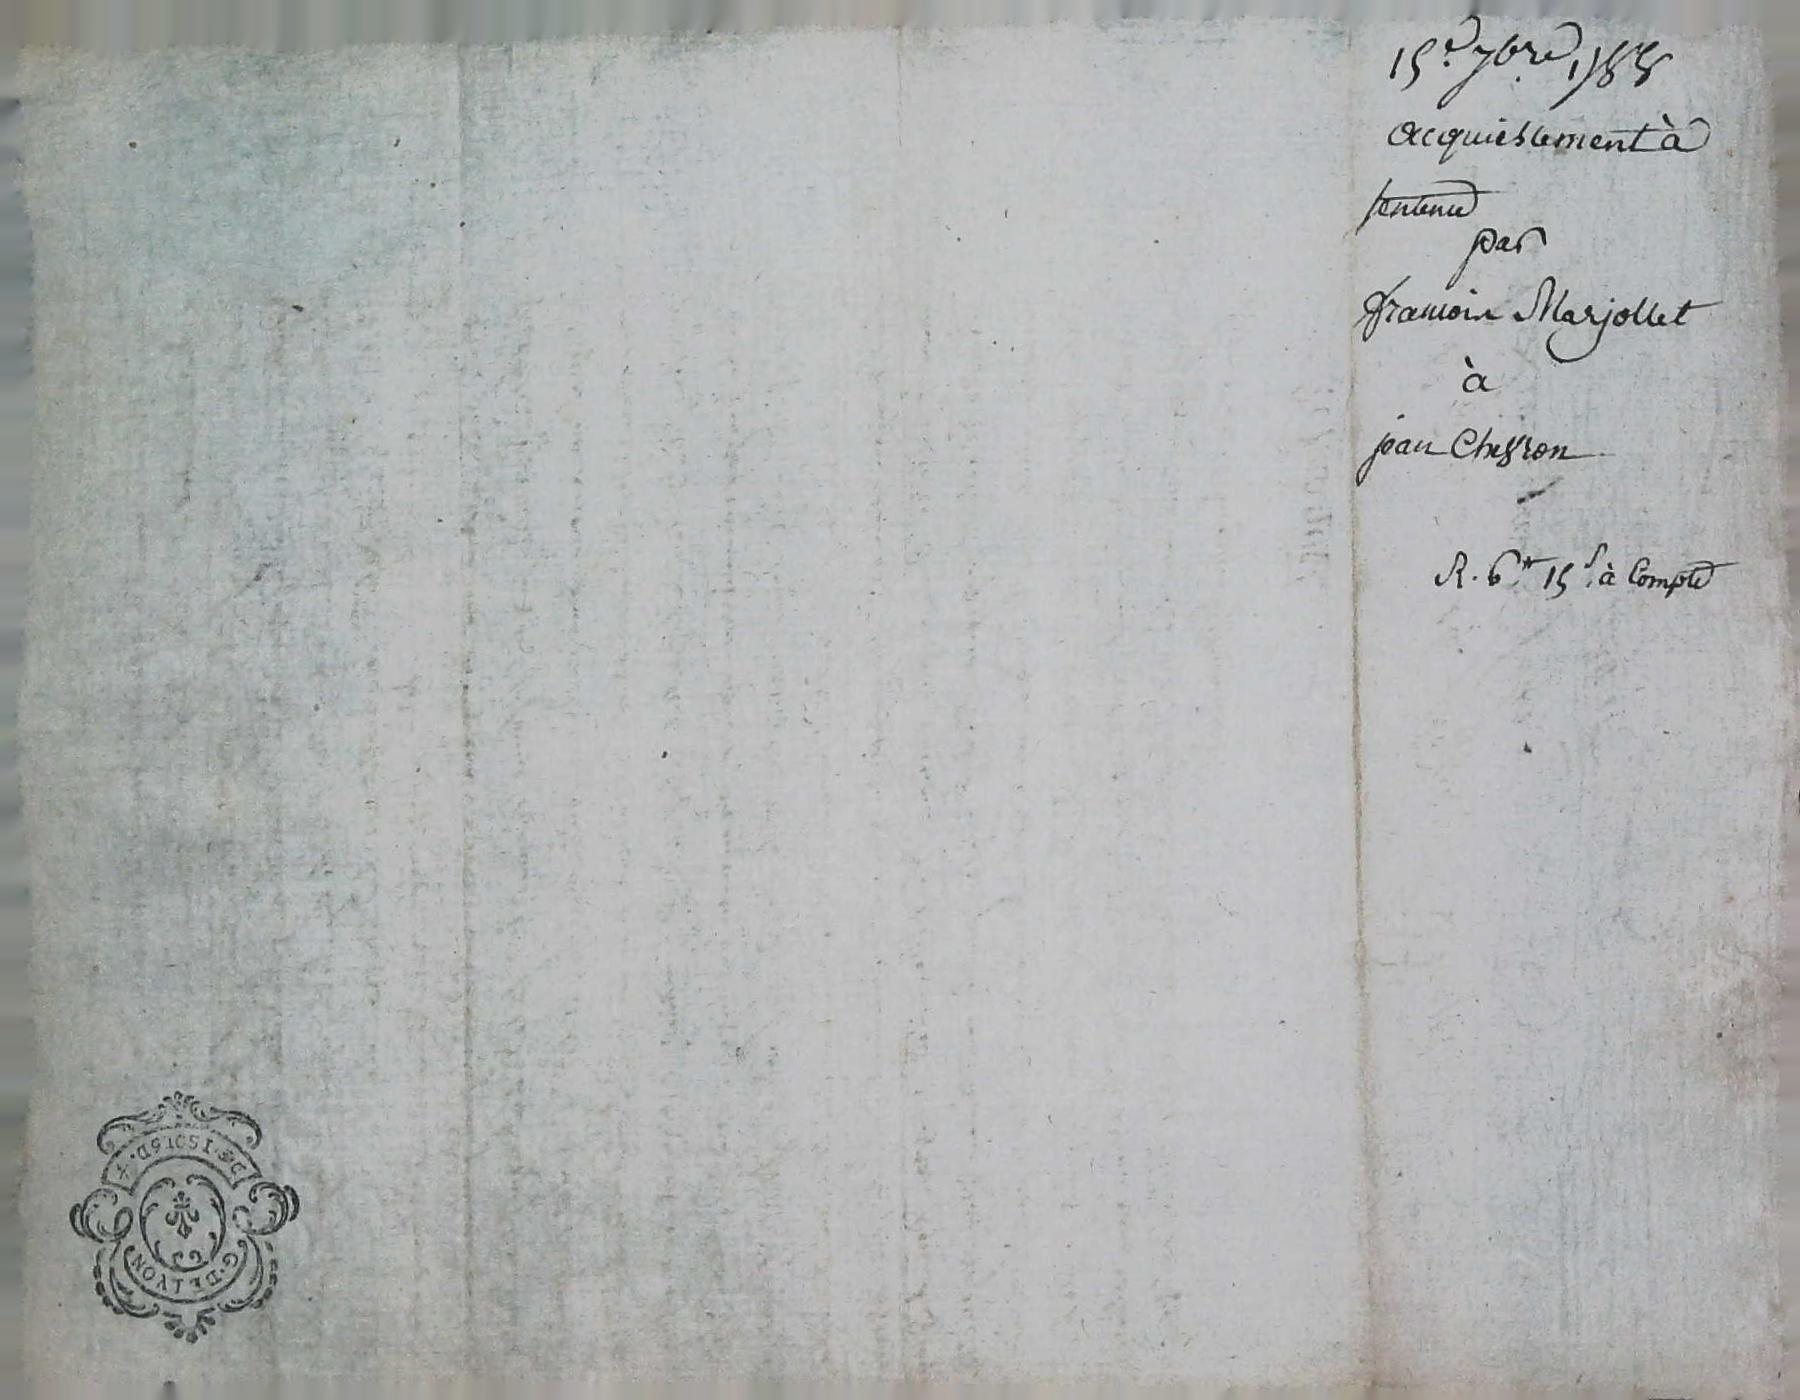 15.e 7bre 1788
acquiescement à
sentence
par
francois Marjollet
à
jean Chegron
R. 6tt 15s à Compte
DE·1SOL6D.
G·DE LYON